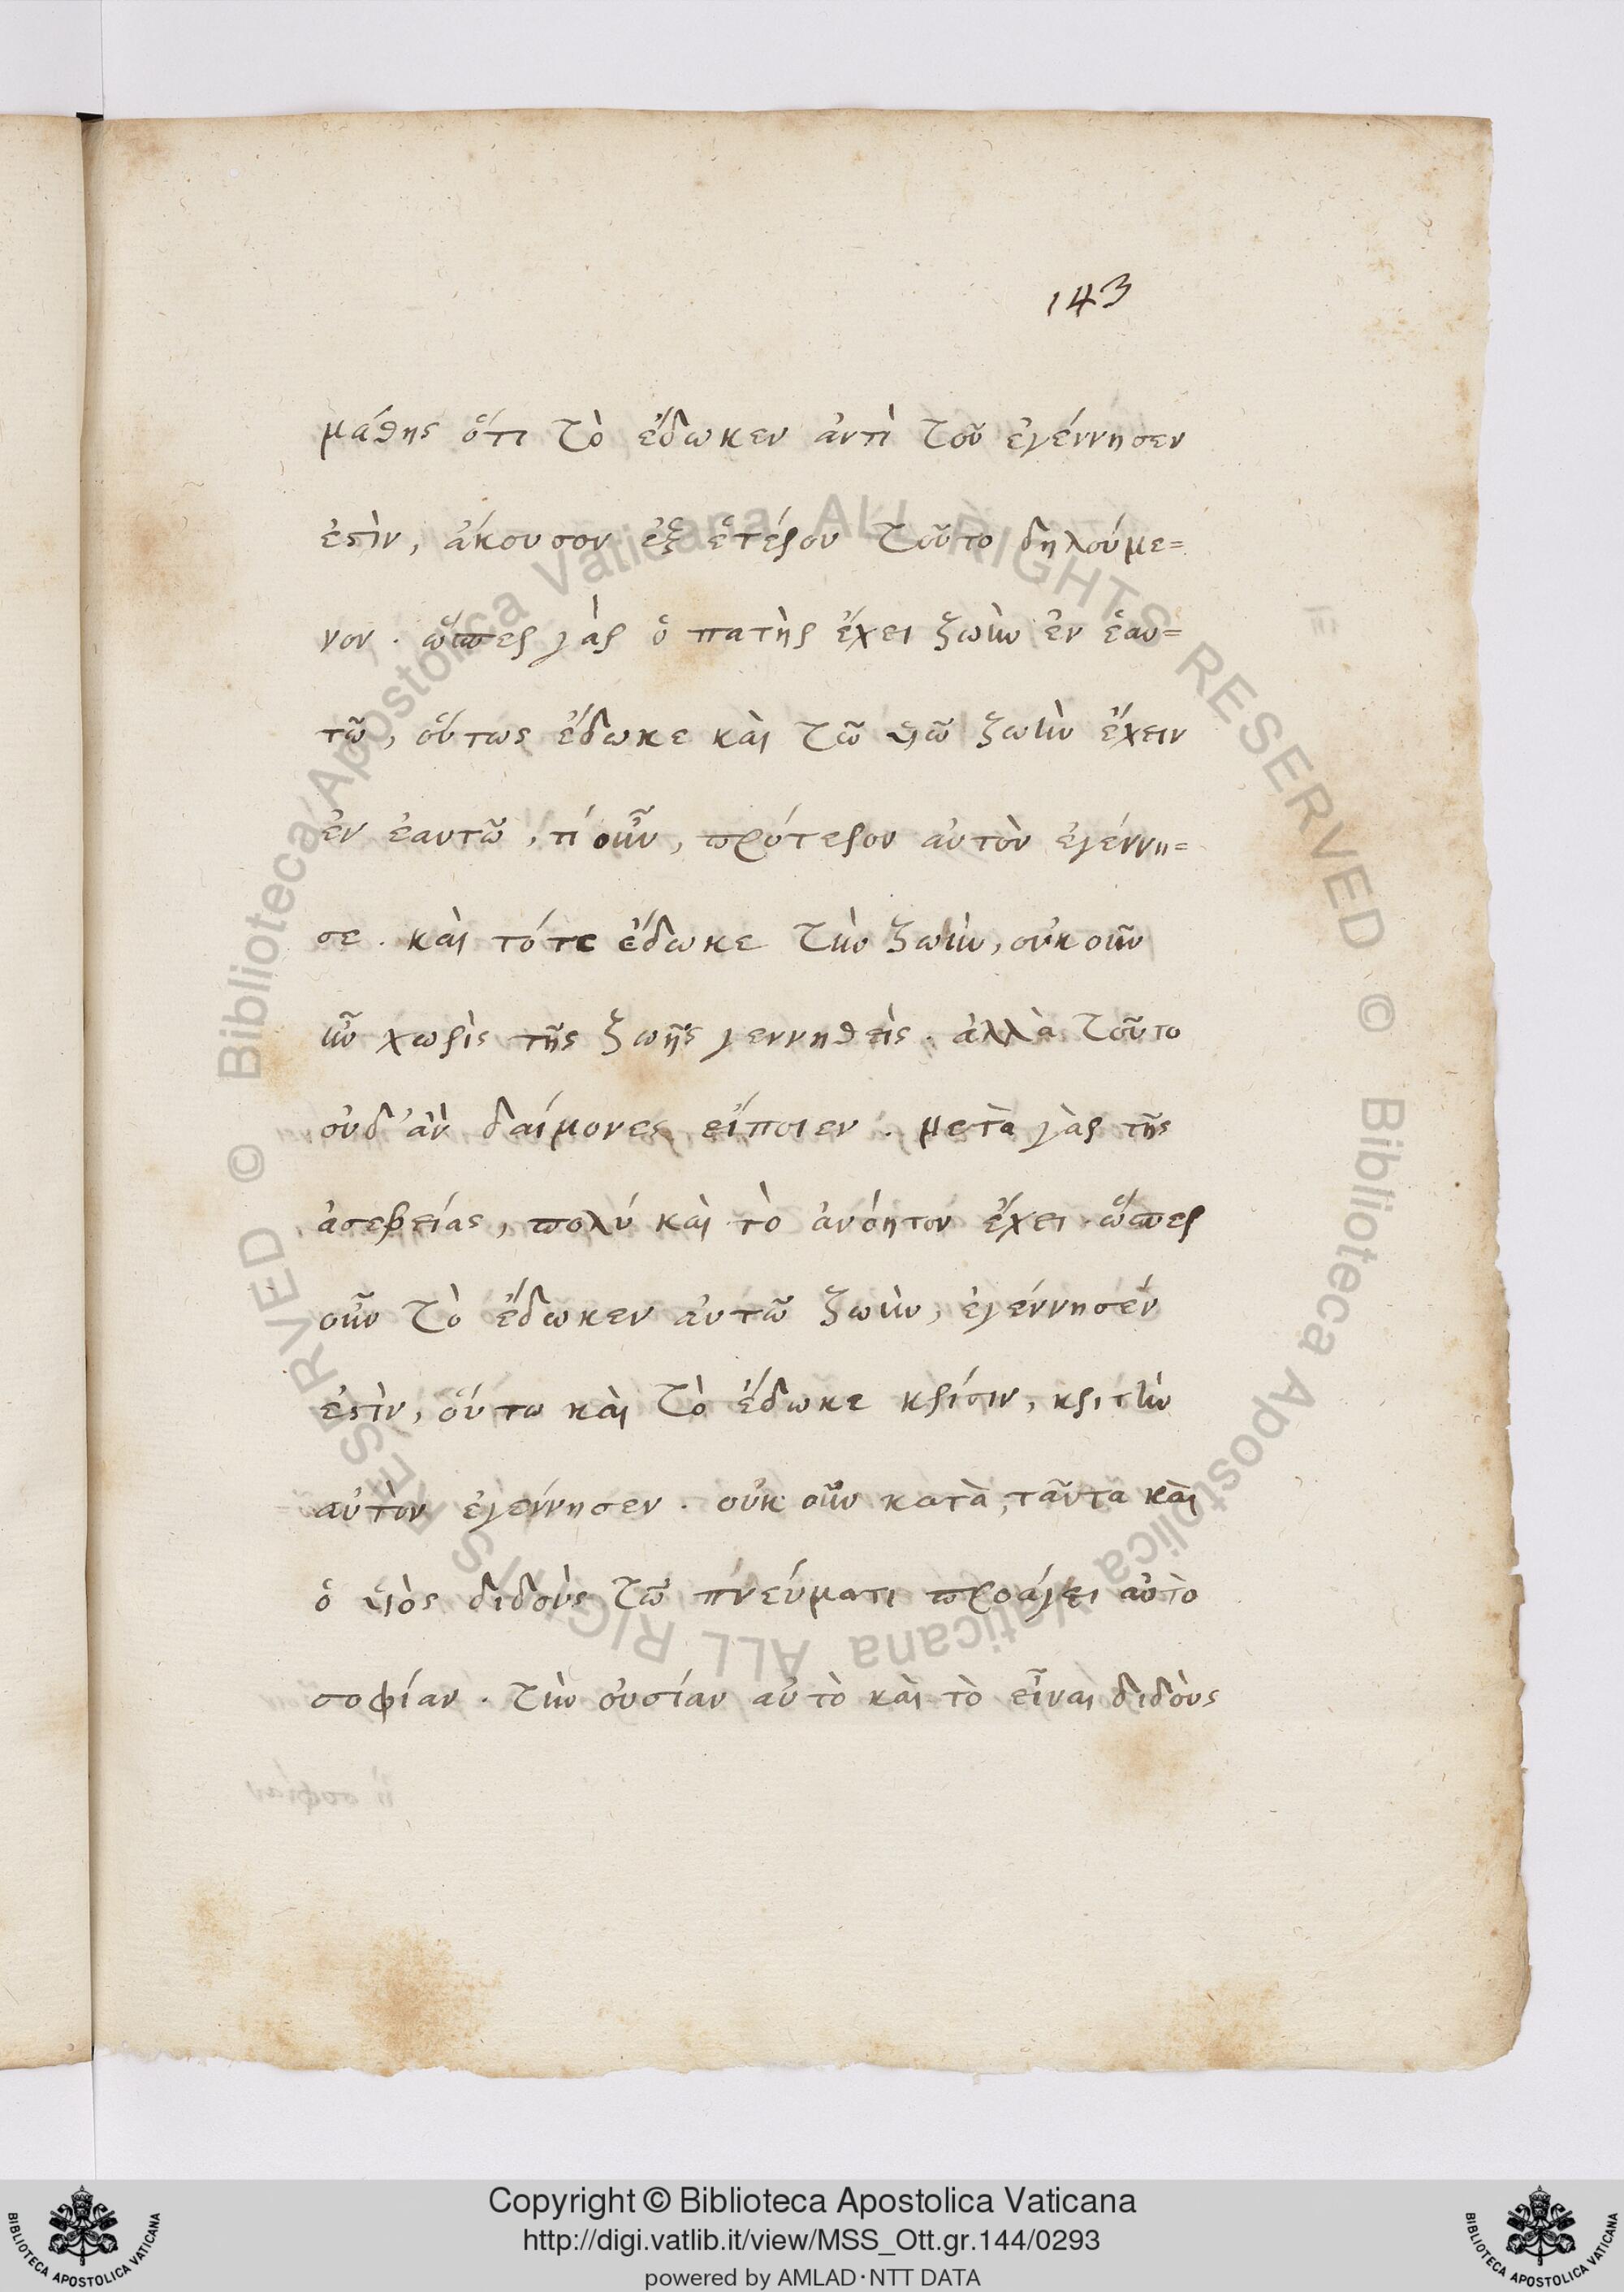 143
μάθης ὅτι τὸ ἔδωκεν ἀντὶ τοῦ ἐγέννησεν
ἐστὶν, ἄκουσον ἐξ ἑτέρου τοῦτο δηλούμε=
νον. ὥσπερ γὰρ ὁ πατὴρ ἔχει ζωὴν ἐν ἑαυ=
τῶ, οὕτως ἔδωκε καὶ τῶ υἱῶ ζωὴν ἔχειν
ἐν ἑαυτῶ, τί οὖν, πρότερον αὐτὸν ἐγέννη=
σε. καὶ τότε ἔδωκε τὴν ζωὴν, οὐκ οὖν
ἦν χωρὶς τῆς ζωῆς γεννηθεὶς. ἀλλὰ τοῦτο
οὐδ' ἂν δαίμονες εἴποιεν. μετὰ γὰρ τῆς
ἀσεβείας, πολύ καὶ τὸ ἀνόητον ἔχει. ὥσπερ
οὖν τὸ ἔδωκεν αὐτῶ ζωὴν, ἐγέννησέν
ἐστὶν, οὕτω καὶ τὸ ἔδωκε κρίσιν, κριτὴν
αὐτὸν ἐγέννησεν. οὐκ οὖν κατὰ ταῦτα καὶ
ὁ υἱὸς διδοὺς τῶ πνεύματι προάγει αὐτὸ
σοφίαν. τὴν οὐσίαν αὐτὸ καὶ τὸ εἶναι διδοὺς
© Biblioteca Apostolica Vaticana ALL RIGHTS RESERVED © Biblioteca Apostolica Vaticana ALL RIGHTS RESERVED
Copyright © Biblioteca Apostolica Vaticana
http://digi.vatlib.it/view/MSS_Ott.gr.144/0293
powered by AMLAD·NTT DATA
BIBLIOTECA APOSTOLICA VATICANA
BIBLIOTECA APOSTOLICA VATICANA